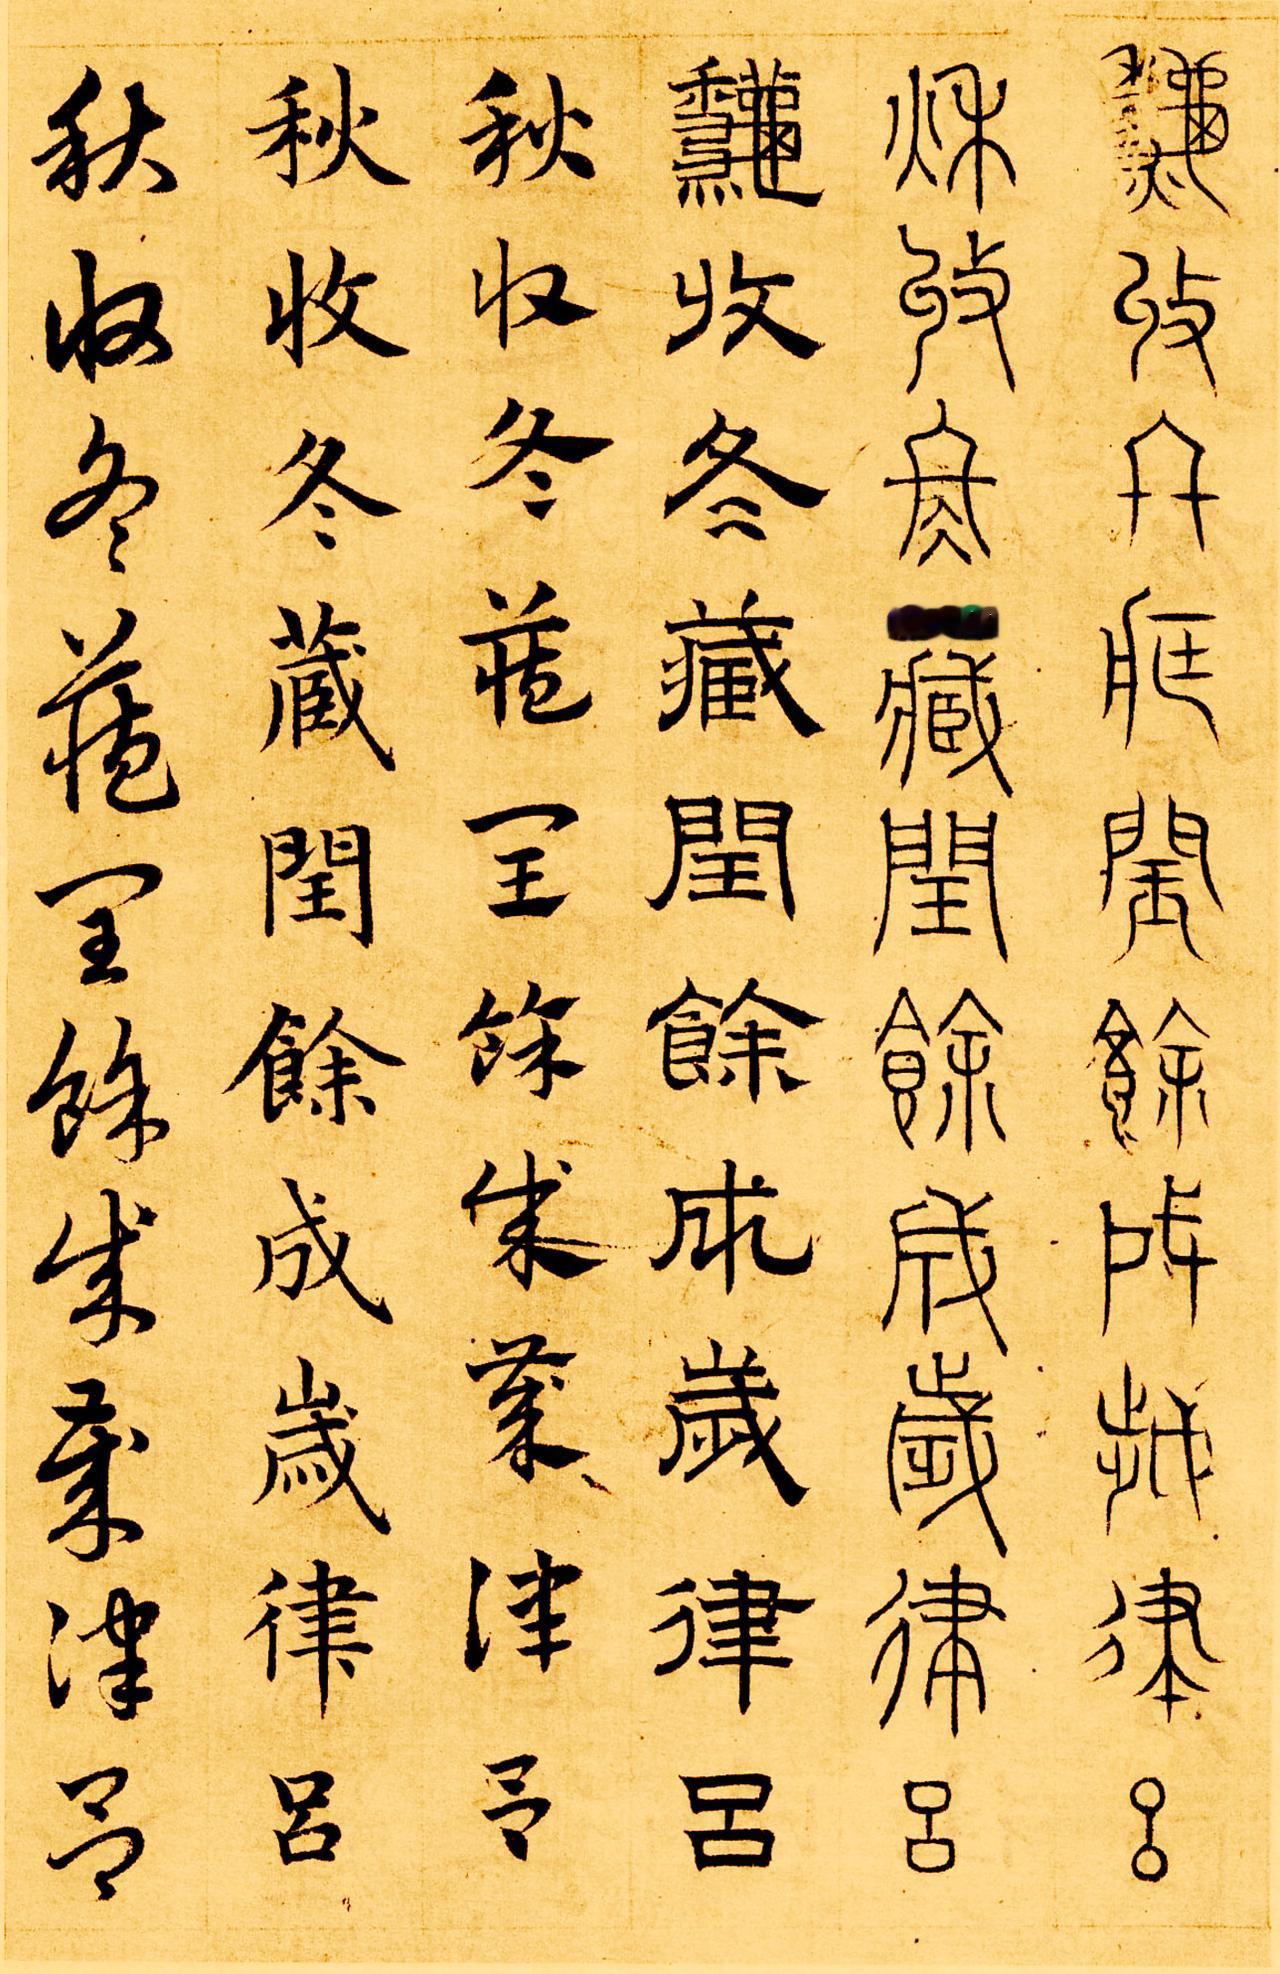 秋收冬藏閏餘成歲律呂
秌收冬藏閏餘成歲律呂
龝收冬藏閏餘成歲律呂
秋收冬藏閏餘成歲律呂
秋收冬藏閏餘成歲律呂
秋收冬藏閏餘成歲律呂